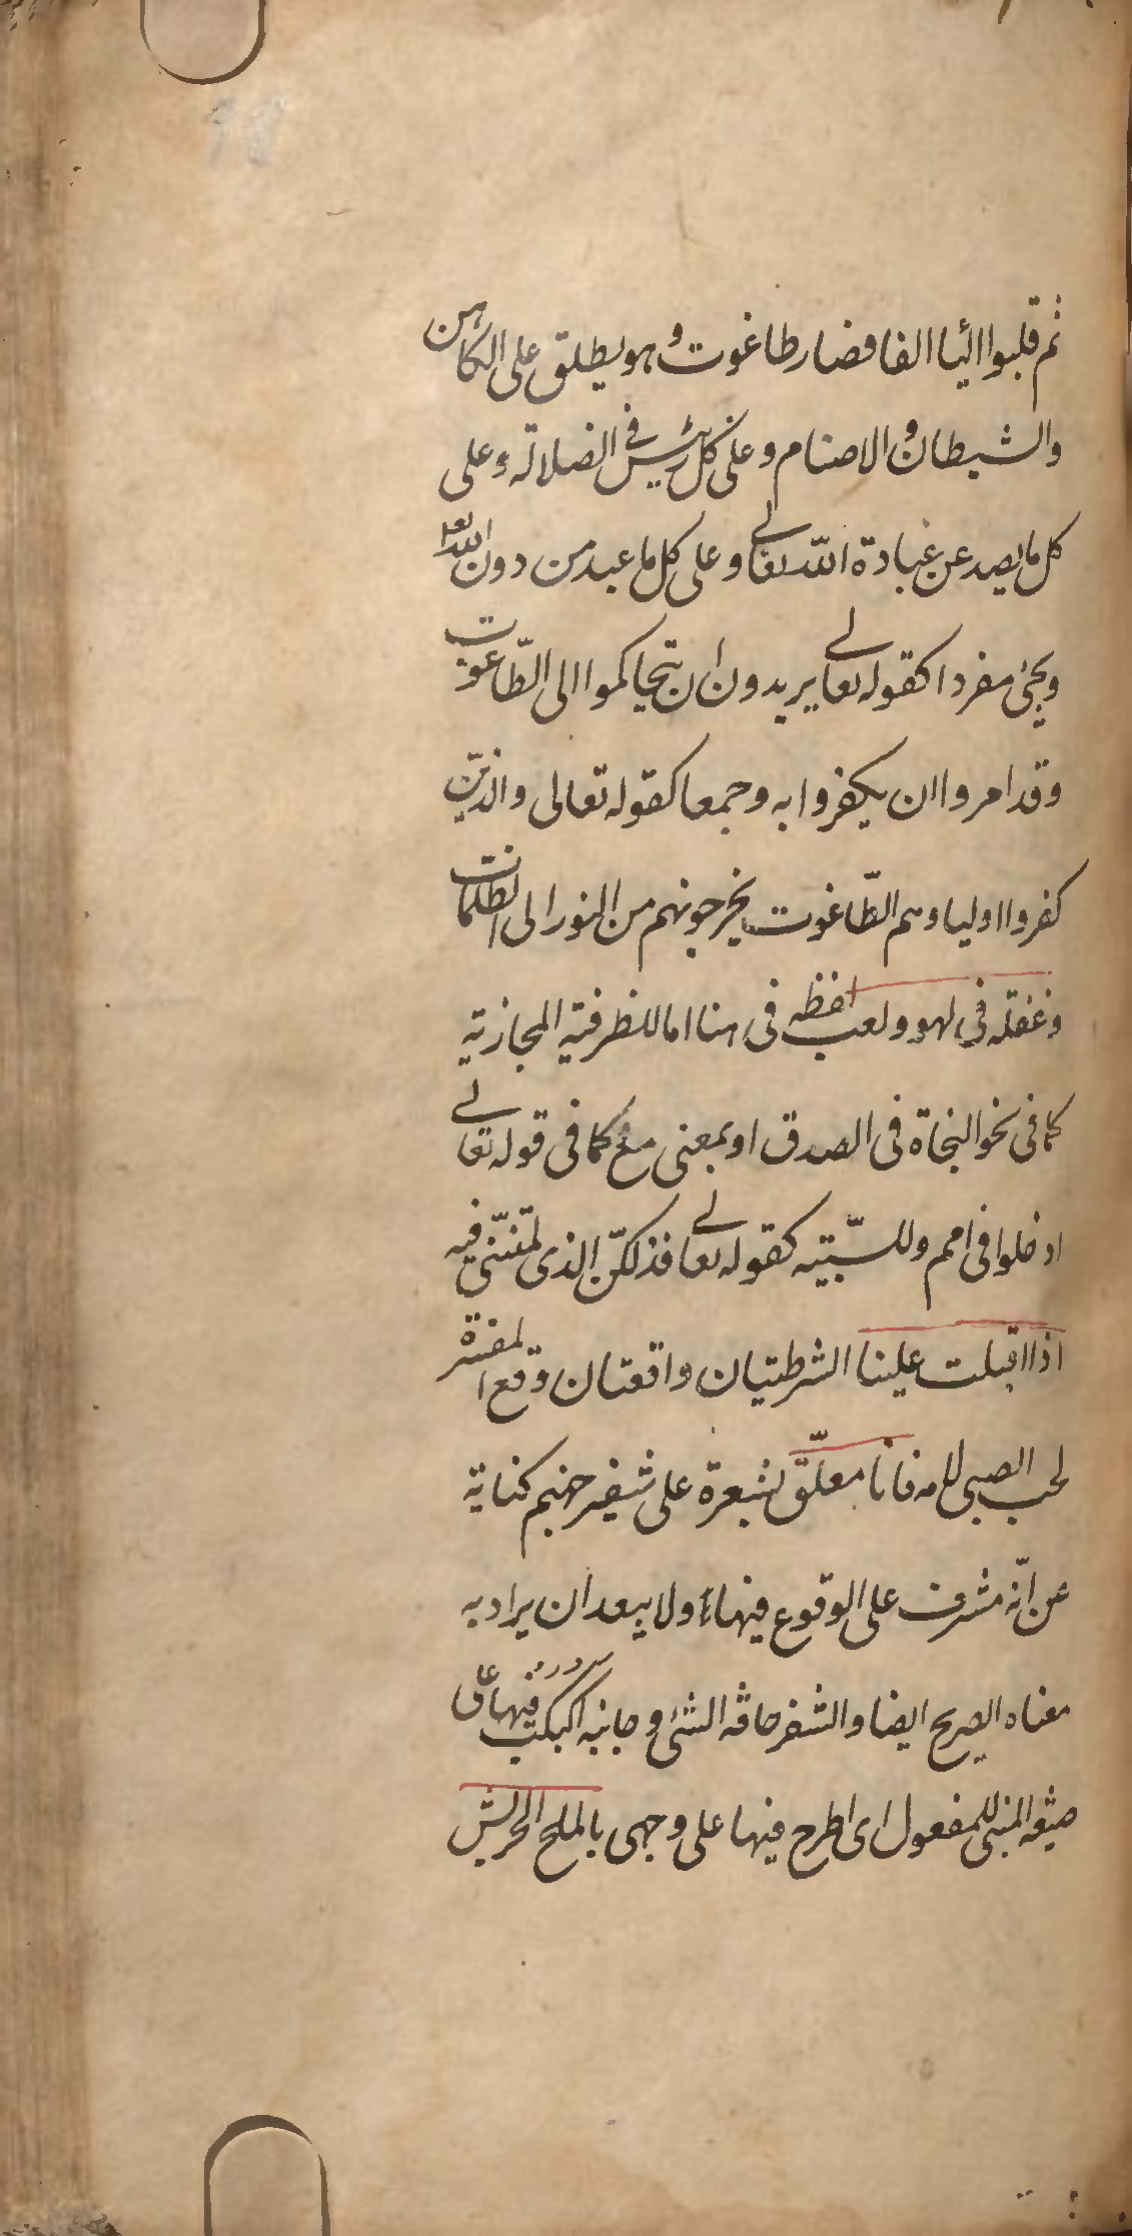 ثم قلبوا اليا الفا فصار طاغوت وهو يطلق على الكاهن
والشيطان والاصنام وعلى كل رئيس في الضلالة وعلى
كل ما يصد عن عبادة الله تعالى وعلى كل ما عبد من دون الله تعا
ويجئ مفردا كقوله تعالى يريدون ان يتحاكموا الى الطّاغوت
وقد امروا ان يكفروا به وجمعا كقوله تعالى والذين
كفروا اولياوهم الطّاغوت يخرجونهم من النور الى الظلمات
وغفلة في لهو ولعب لفظه في هنا اما للظرفية المجازية
كما في نحو النجاة في الصدق او بمعنى مع كما في قوله تعالى
ادخلوا في امم وللسّببية كقوله تعالى فذلكنّ الذي لمتنّني فيه
اذا اقبلت علينا الشرطيتان واقعتان وقع المفسّر
لحب الصبي لامه فانا معلّق بشعرة على شفير جهنم كناية
عن انّه مشرف على الوقوع فيها ولا يبعد ان يراد به
معناه الصريح ايضا والشفر حافة الشئ وجانبه اكبكب فيها على
صيغة المبني للمفعول اى اطرح فيها على وجهى بالملح الجريش